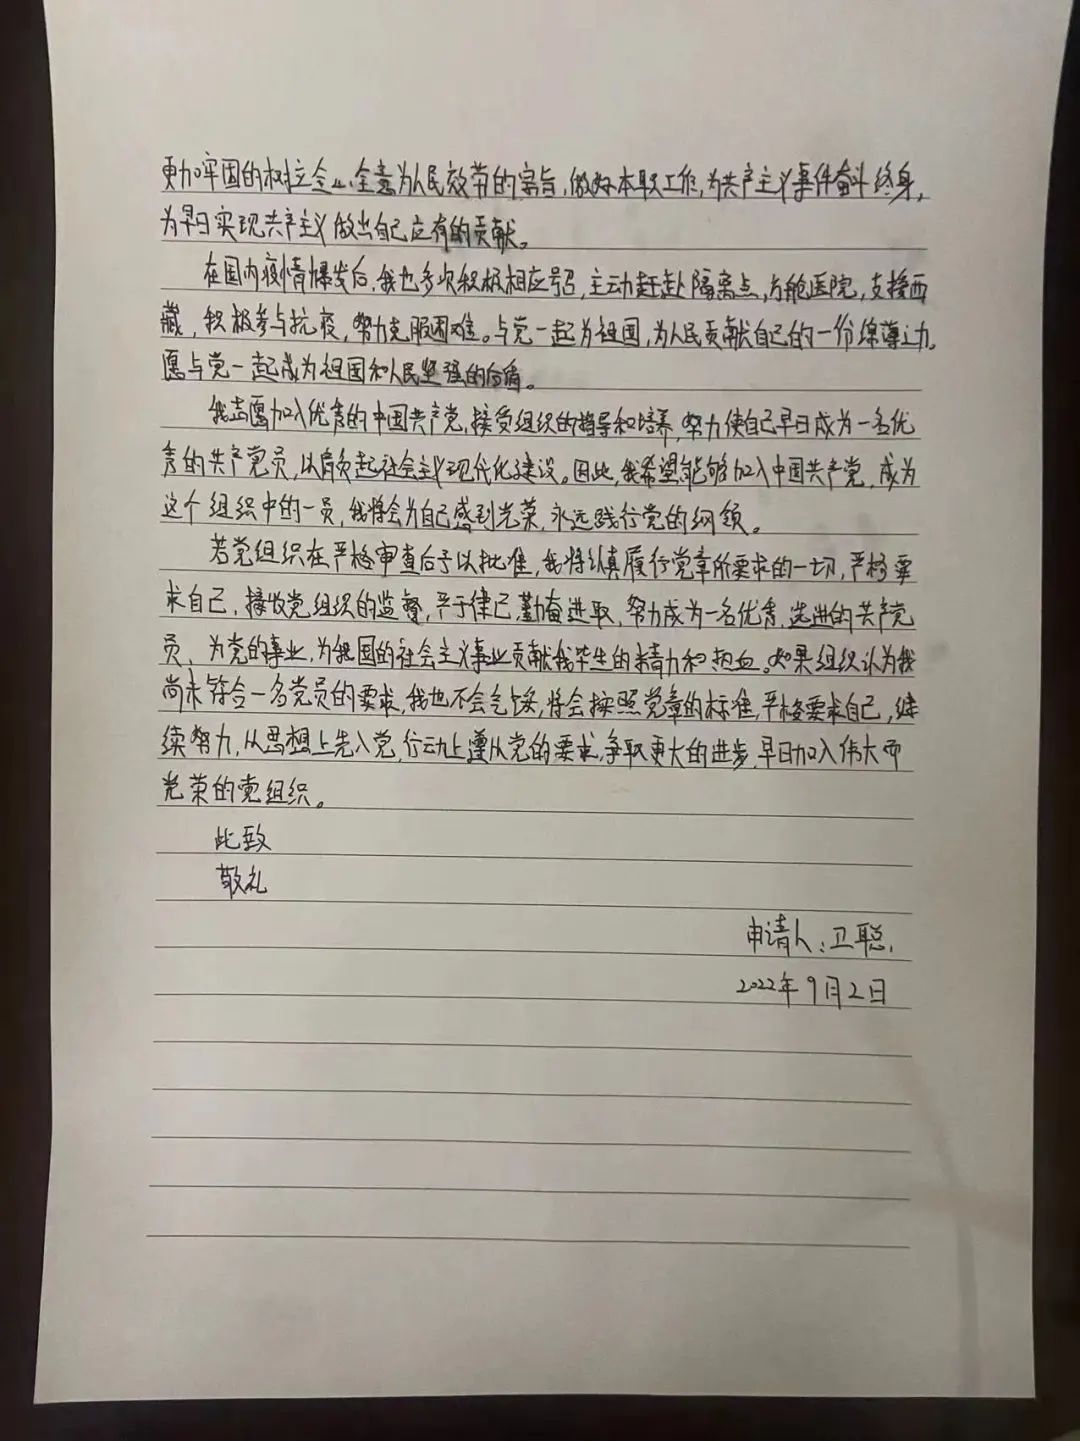 更加牢固的树立全心全意为人民效劳的宗旨,做好本职工作,为共产主义事件奋斗终身,
为早日实现共产主义做出自己应有的贡献。
在国内疫情爆发后,我也多次积极相应号召,主动赶赴隔离点,方舱医院,支援西
藏,积极参与抗疫,努力克服困难。与党一起为祖国,为人民贡献自己的一份绵薄之力。
愿与党一起成为祖国和人民坚强的后盾。
我志愿加入优秀的中国共产党,接受组织的指导和培养,努力使自己早日成为一名优
秀的共产党员,以肩负起社会主义现代化建设。因此,我希望能够加入中国共产党,成为
这个组织中的一员,我将会为自己感到光荣,永远践行党的纲领。
若党组织在严格审查后予以批准,我将认真履行党章所要求的一切,严格要
求自己,接收党组织的监督,严于律己,勤奋进取,努力成为一名优秀,先进的共产党
员、为党的事业,为我国的社会主义事业贡献我毕生的精力和热血。如果组织认为我
尚未符合一名党员的要求,我也不会气馁,将会按照党章的标准,严格要求自己,继
续努力,从思想上先入党,行动上遵从党的要求,争取更大的进步,早日加入伟大而
光荣的党组织。
此致
敬礼
申请人:卫聪.
2022年9月2日